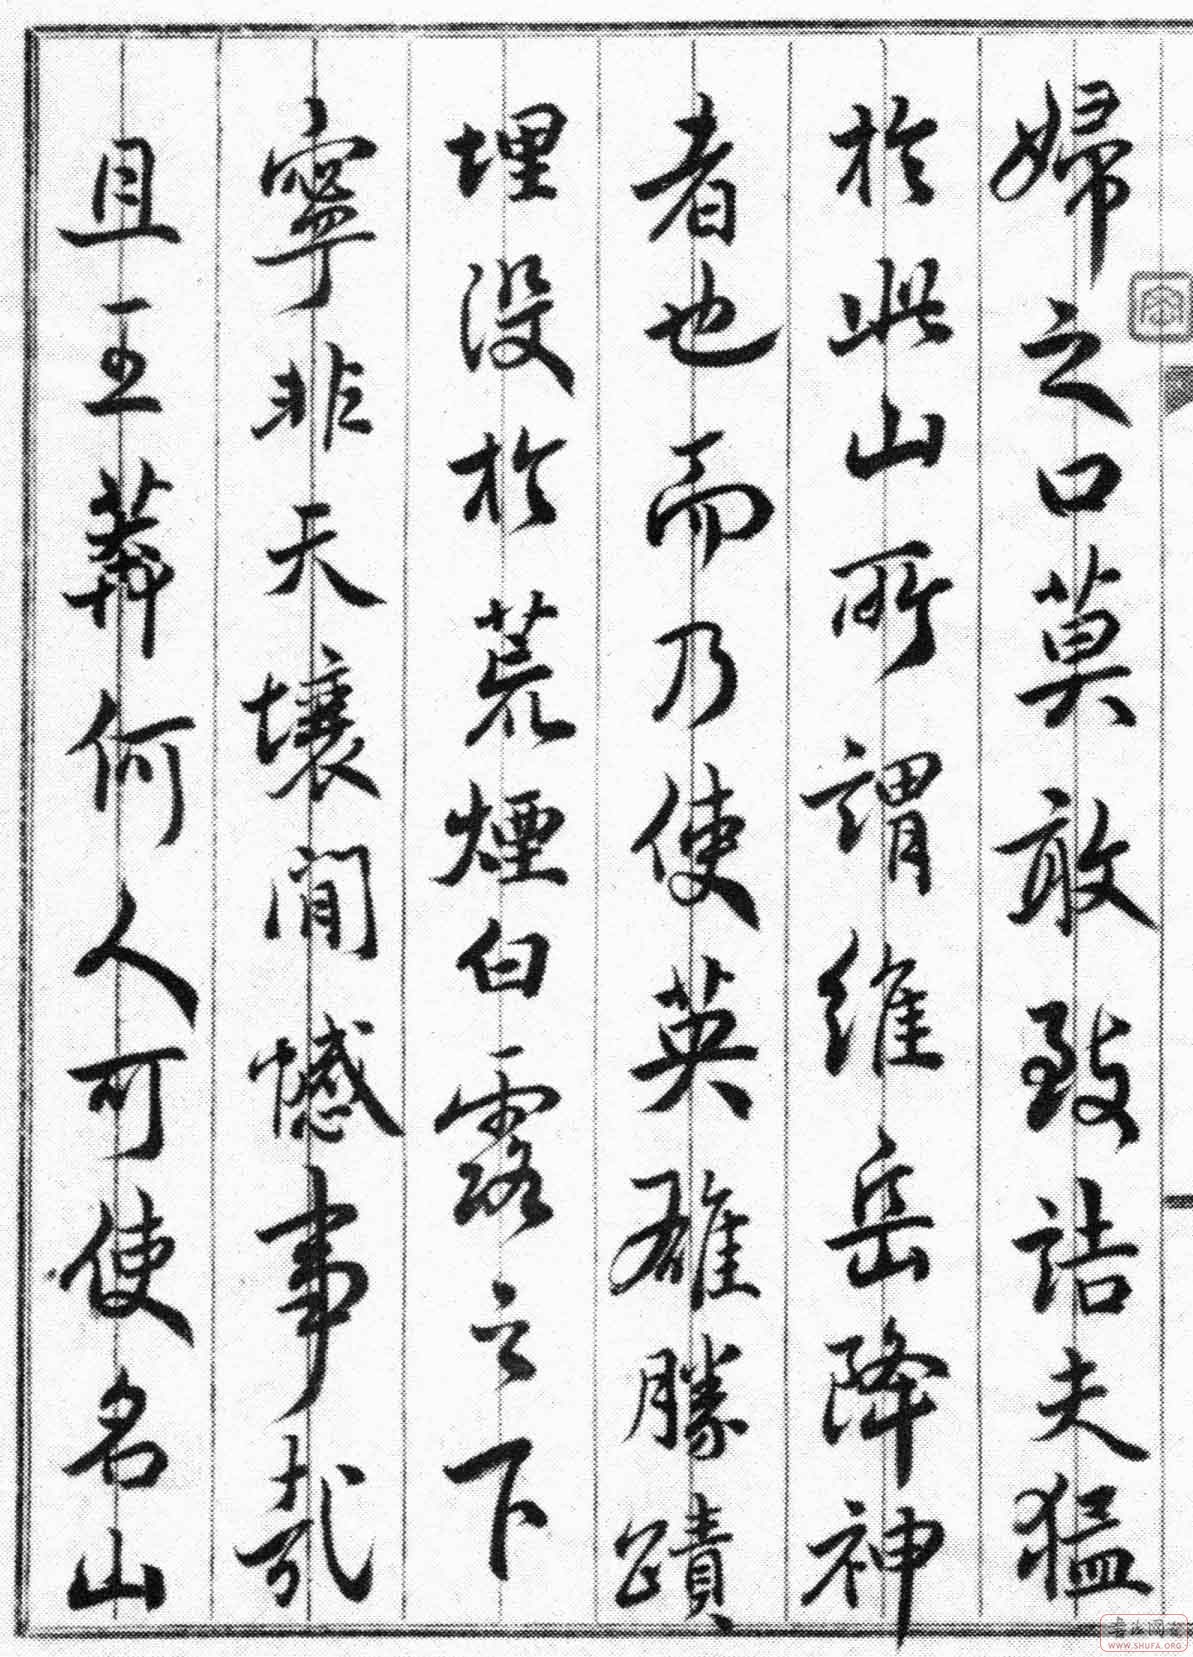 婦之口莫敢致詰夫猛
於此山所謂維岳降神
者也而乃使英雄勝蹟
埋没於荒煙白露之下
寧非天壤間憾事哉
且王莽何人可使名山
WWW.SHUFA.ORG